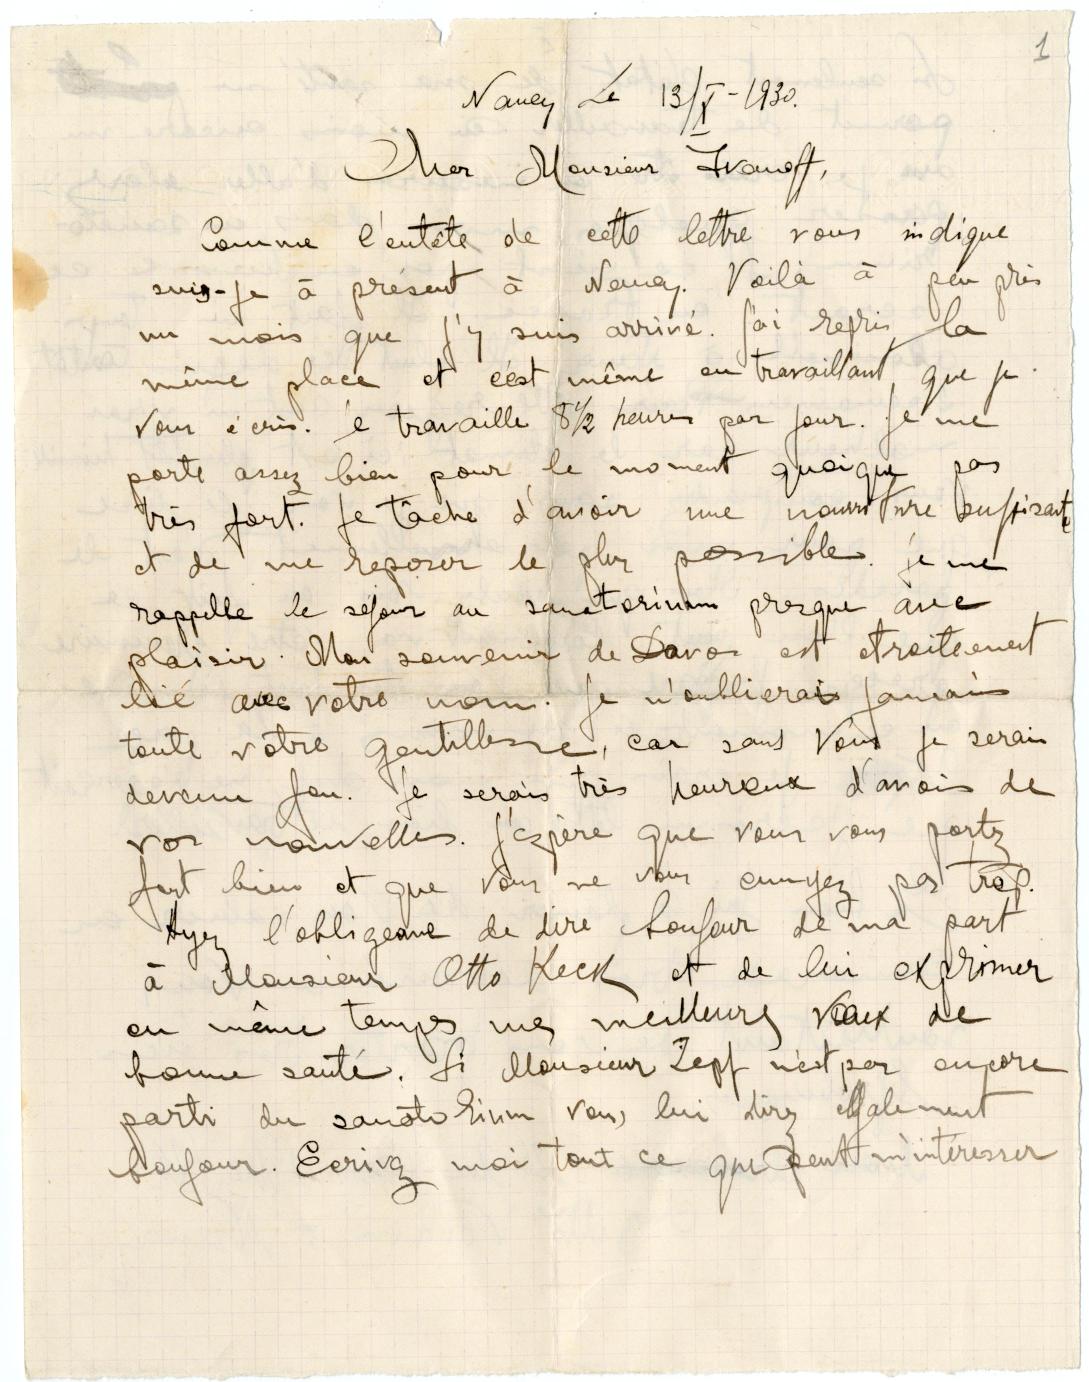 1
Nancy Le 13/X-1930.
Cher Monsieur Ivanoff,
Comme l'entête de cette lettre vous indique
suis-je à présent à Nancy. Voilà à peu près
un mois que j'y suis arrivé. j'ai repris la
même place et c'est même en travaillant, que je
vous écris. Je travaille 8 1/2 heures par jour. Je me
porte assez bien pour le moment quoique pas
très fort. Je tâche d'avoir une nourriture suffisante
et de me reposer le plus possible. je me
rappelle le séjour au sanatorium presque avec
plaisir. Mon souvenir de Davos est étroitement
lié avec votre nom. Je n'oublierais jamais
toute votre gentillesse, car sans vous je serais
devenu fou. Je serais très heureux d'avoir de
vos nouvelles. J'espère que vous vous portez
fort bien et que vous ne vous ennuyez pas trop.
Ayez l'obligeance de dire bonjour de ma part
à Monsieur Otto Keck et de lui exprimer
en même temps mes meilleurs vœux de
bonne santé. Si Monsieur Zepf n'est pas encore
parti du sanatorium vous lui direz également
bonjour. Ecrivez moi tout ce que peut m'intéresser